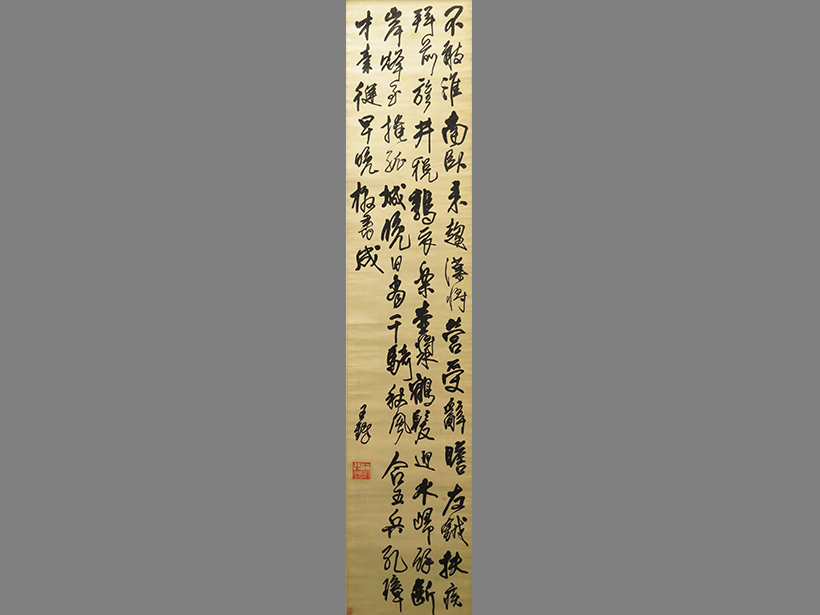 不敢淮南臥来趨漢將營受辭瞻左鉞扶疾
拜前旌井税鶉衣樂壺漿鶴髮迎水歸餘斷
岸烽至掩孤城晚日當千騎秋風合五兵孔璋
才素健早晚檄書成
王鐸